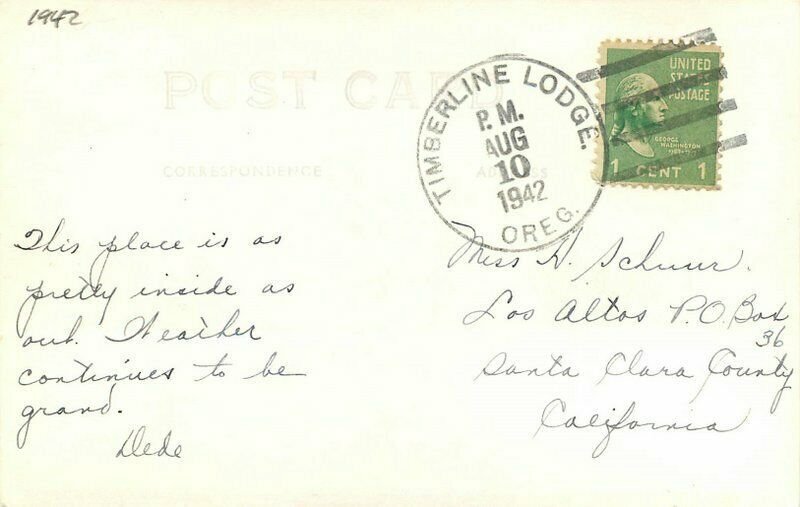 1942
POST CARD
CORRESPONDENCE
ADDRESS
TIMBERLINE LODGE.
P.M.
AUG
10
1942
OREG.
UNITED
STATES
POSTAGE
GEORGE
WASHINGTON
1 CENT 1
This place is as
pretty inside as
out. Weather
continues to be
grand.
Dede
Miss H. Schuur.
Los Altos P.O. Box
36
Santa Clara County
California